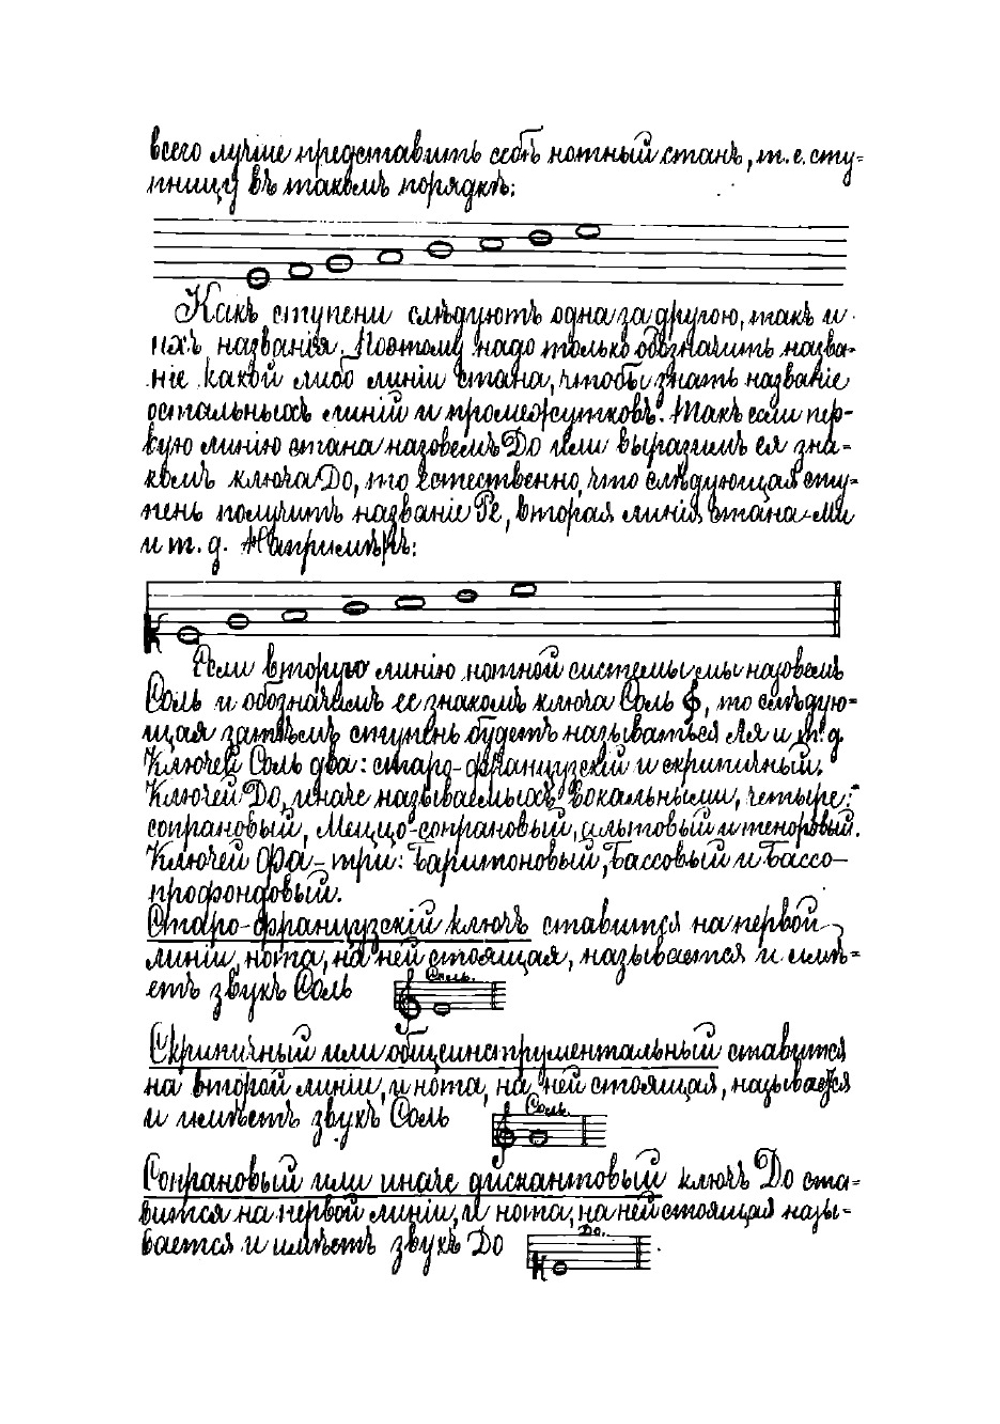 всего лучше представить себѣ нотный станъ, т. е. сту=
пницу въ такомъ порядкѣ:
Какъ ступени слѣдуютъ одна за другою, такъ и
ихъ названія. Поэтому надо только обозначить назва-
ніе какой либо линіи стана, чтобы знать названіе
остальныхъ линій и промежутковъ. Такъ если пер-
вую линію стана назовемъ До или выразимъ ея зна-
комъ ключа До, то естественно, что слѣдующая сту-
пень получитъ названіе Ре, вторая линія стана-ми
и т. д. Напримѣръ:
Если вторую линію нотной системы мы назовемъ
Соль и обозначимъ ее знакомъ ключа Соль 𝄞, то слѣдую=
щая затѣмъ ступень будетъ называться Ля и т. д.
Ключей Соль два: старо-французскій и скрипичный.
Ключей До, иначе называемыхъ вокальными, четыре:
сопрановый, Меццо-сопрановый, альтовый и теноровый.
Ключей Фа-три: Баритоновый, Бассовый и Бассо-
профондовый.
Старо-французскій ключъ ставится на первой
линіи, нота, на ней стоящая, называется и имѣ=
етъ звукъ Соль
Соль.
Скрипичный или общеинструментальный ставится
на второй линіи, и нота, на ней стоящая, называется
и имѣетъ звукъ Соль
Соль
Сопрановый или иначе дискантовый ключъ До ста=
вится на первой линіи, и нота, на ней стоящая назы-
вается и имѣетъ звукъ До
До.